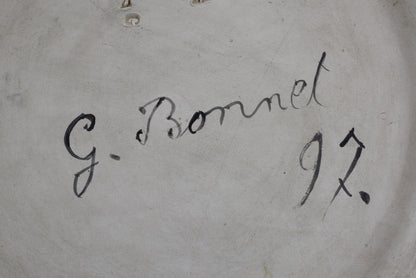 G. Bonnet
97.